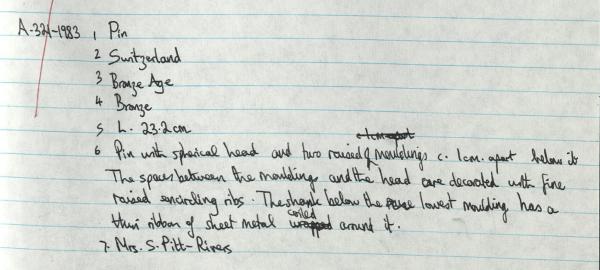 A-321-1983 1 Pin
2 Switzerland
3 Bronze Age
4 Bronze
5 L. 23.2cm
6 Pin with spherical head and two raised mouldings c. 1cm. apart below it
The spaces between the mouldings and the head are decorated with fine
raised encircling ribs. The shank below the lowest moulding has a
thin ribbon of sheet metal coiled around it.
7. Mrs. S. Pitt-Rivers